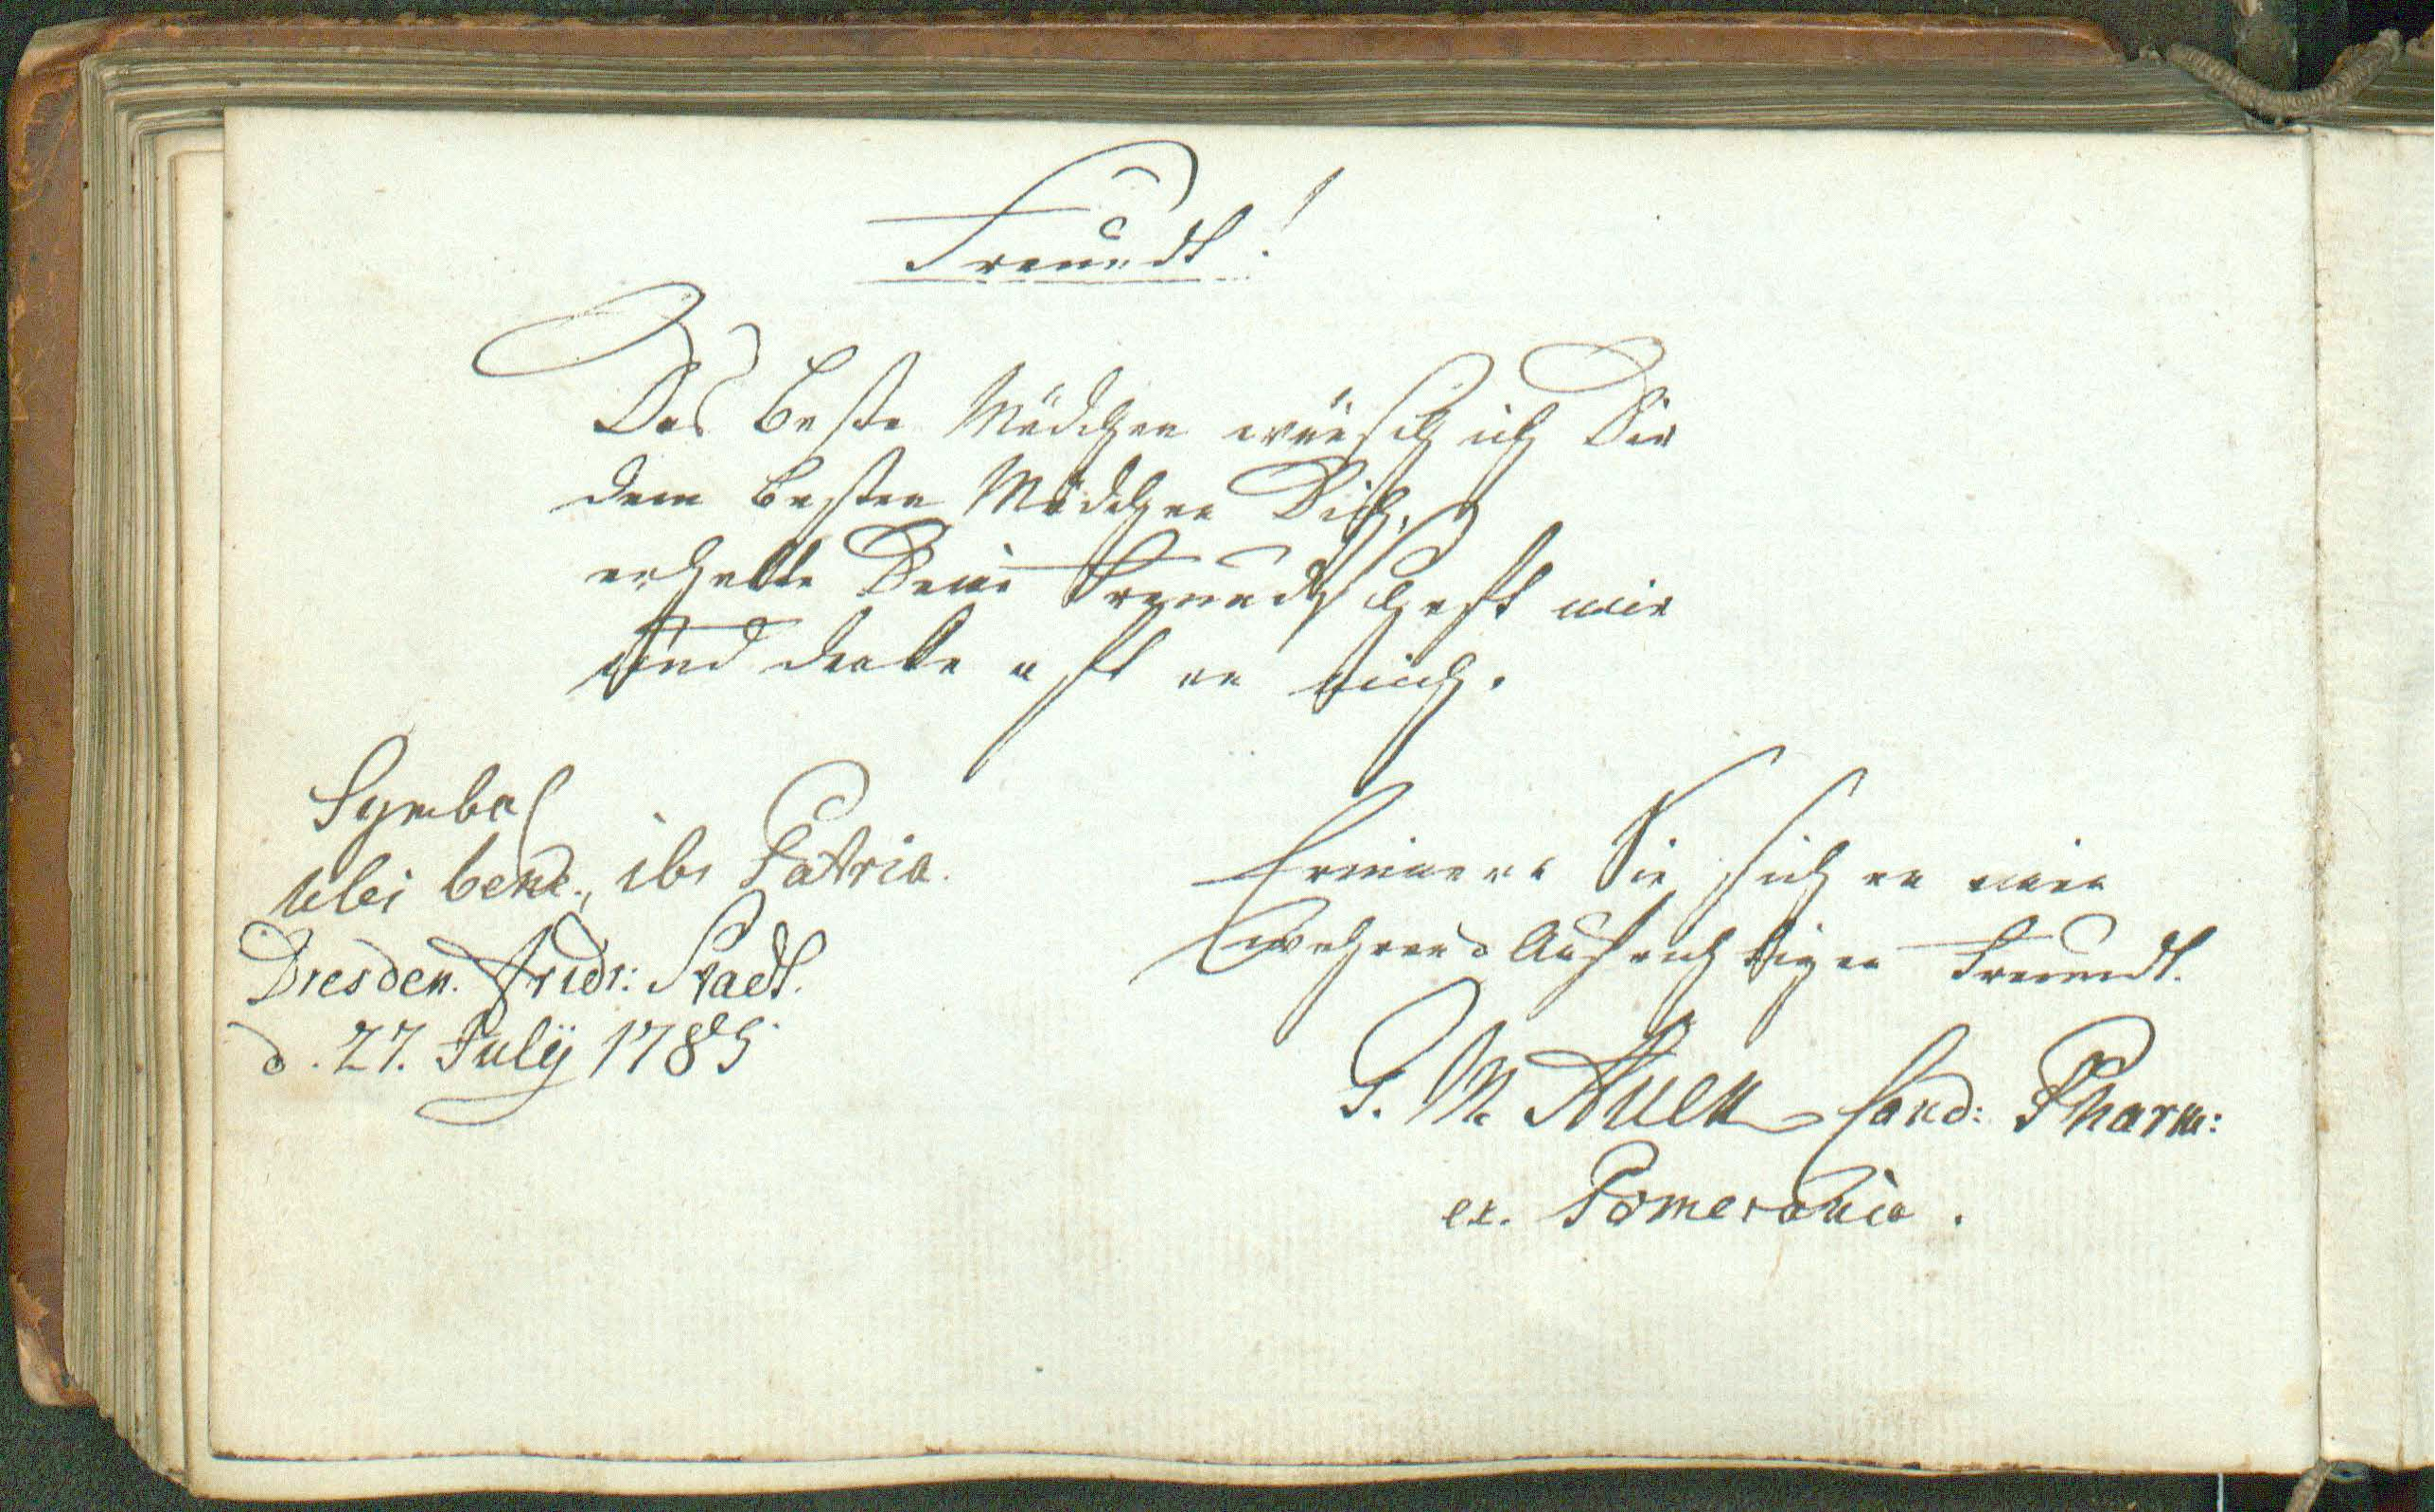 Freundt!
Das beste Mädchen wünsch ich Dir
dem besten Mädchen Dich,
erhalte Deine Freundschaft mir
und denke oft an mich.
Symbol
Ubi bene, ibi Patria.
Dresden. Fridr: Stadt.
d. 27. Julÿ 1785
Erinnern Sie sich an einen
Aufrichtigen Freundt.
G. M. Auen Cand: Pharm:
ex. Pomerania.